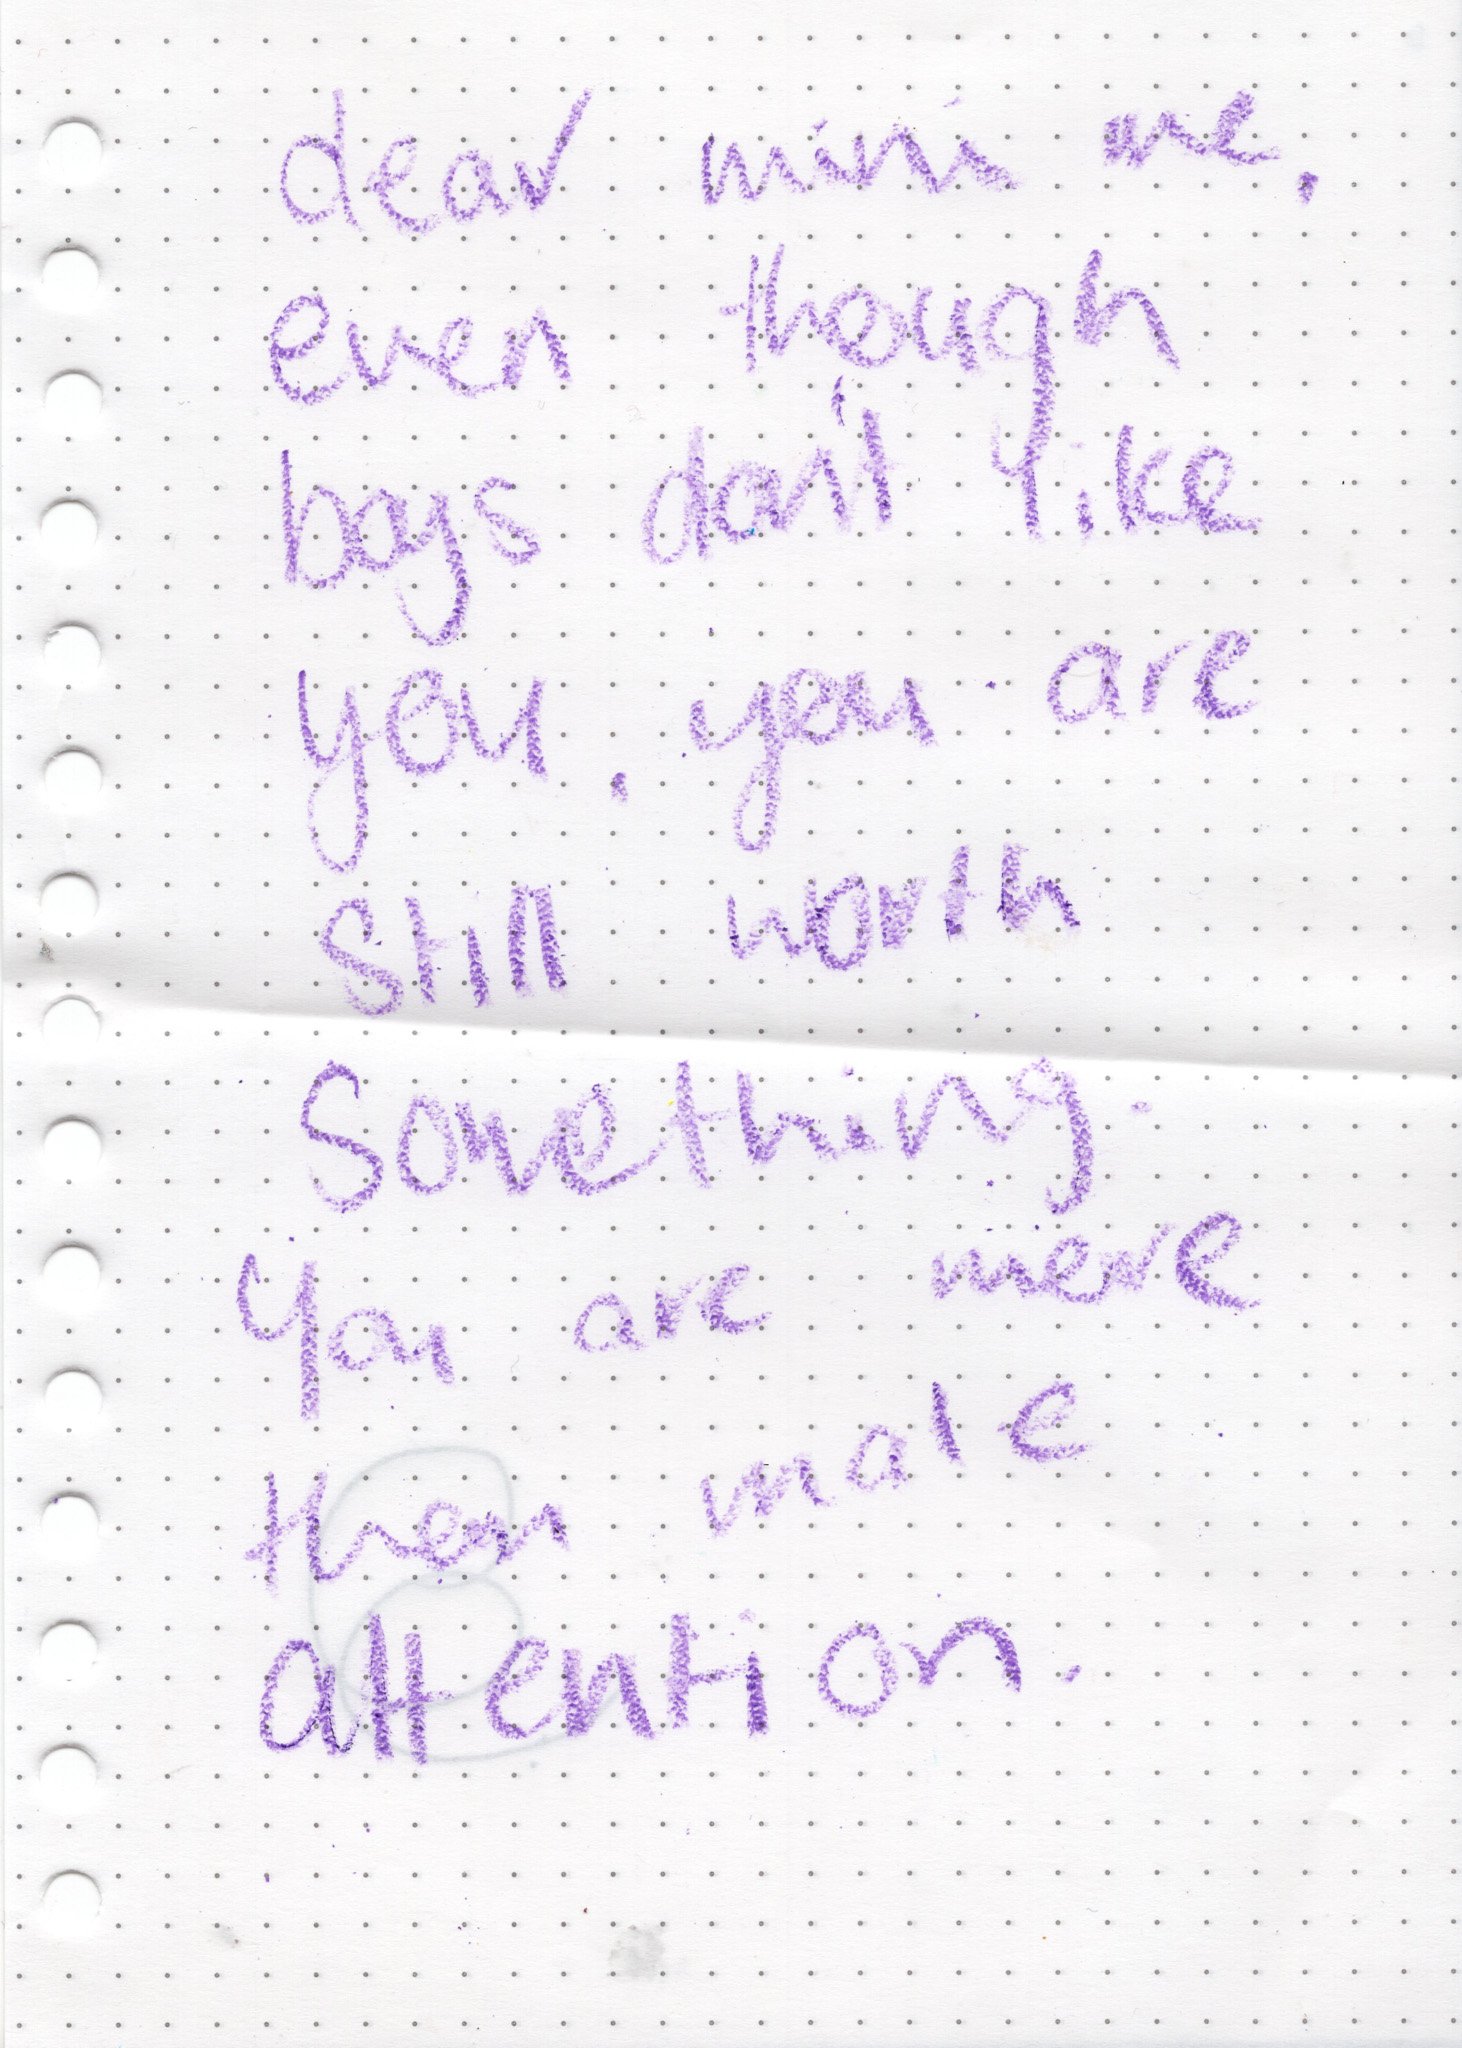 dear mini me,
even though
boys don't like
you, you are
still worth
something.
You are more
then male
attention.